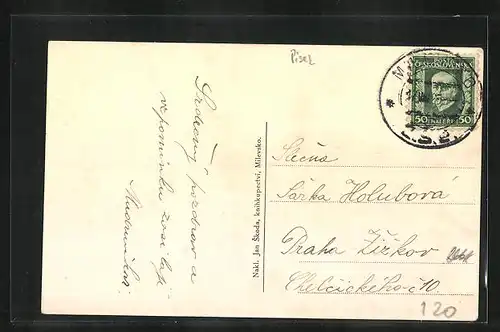 Písek
Srdečný pozdrav a
vzpomínku zasílají
Nakl. Jan Škoda, knihkupectví, Milevsko.
ČESKOSLOVENSKO
50 HALÉŘŮ 50
Slečna
Šárka Holubová
Praha Žižkov
Chelčického č 10.
120